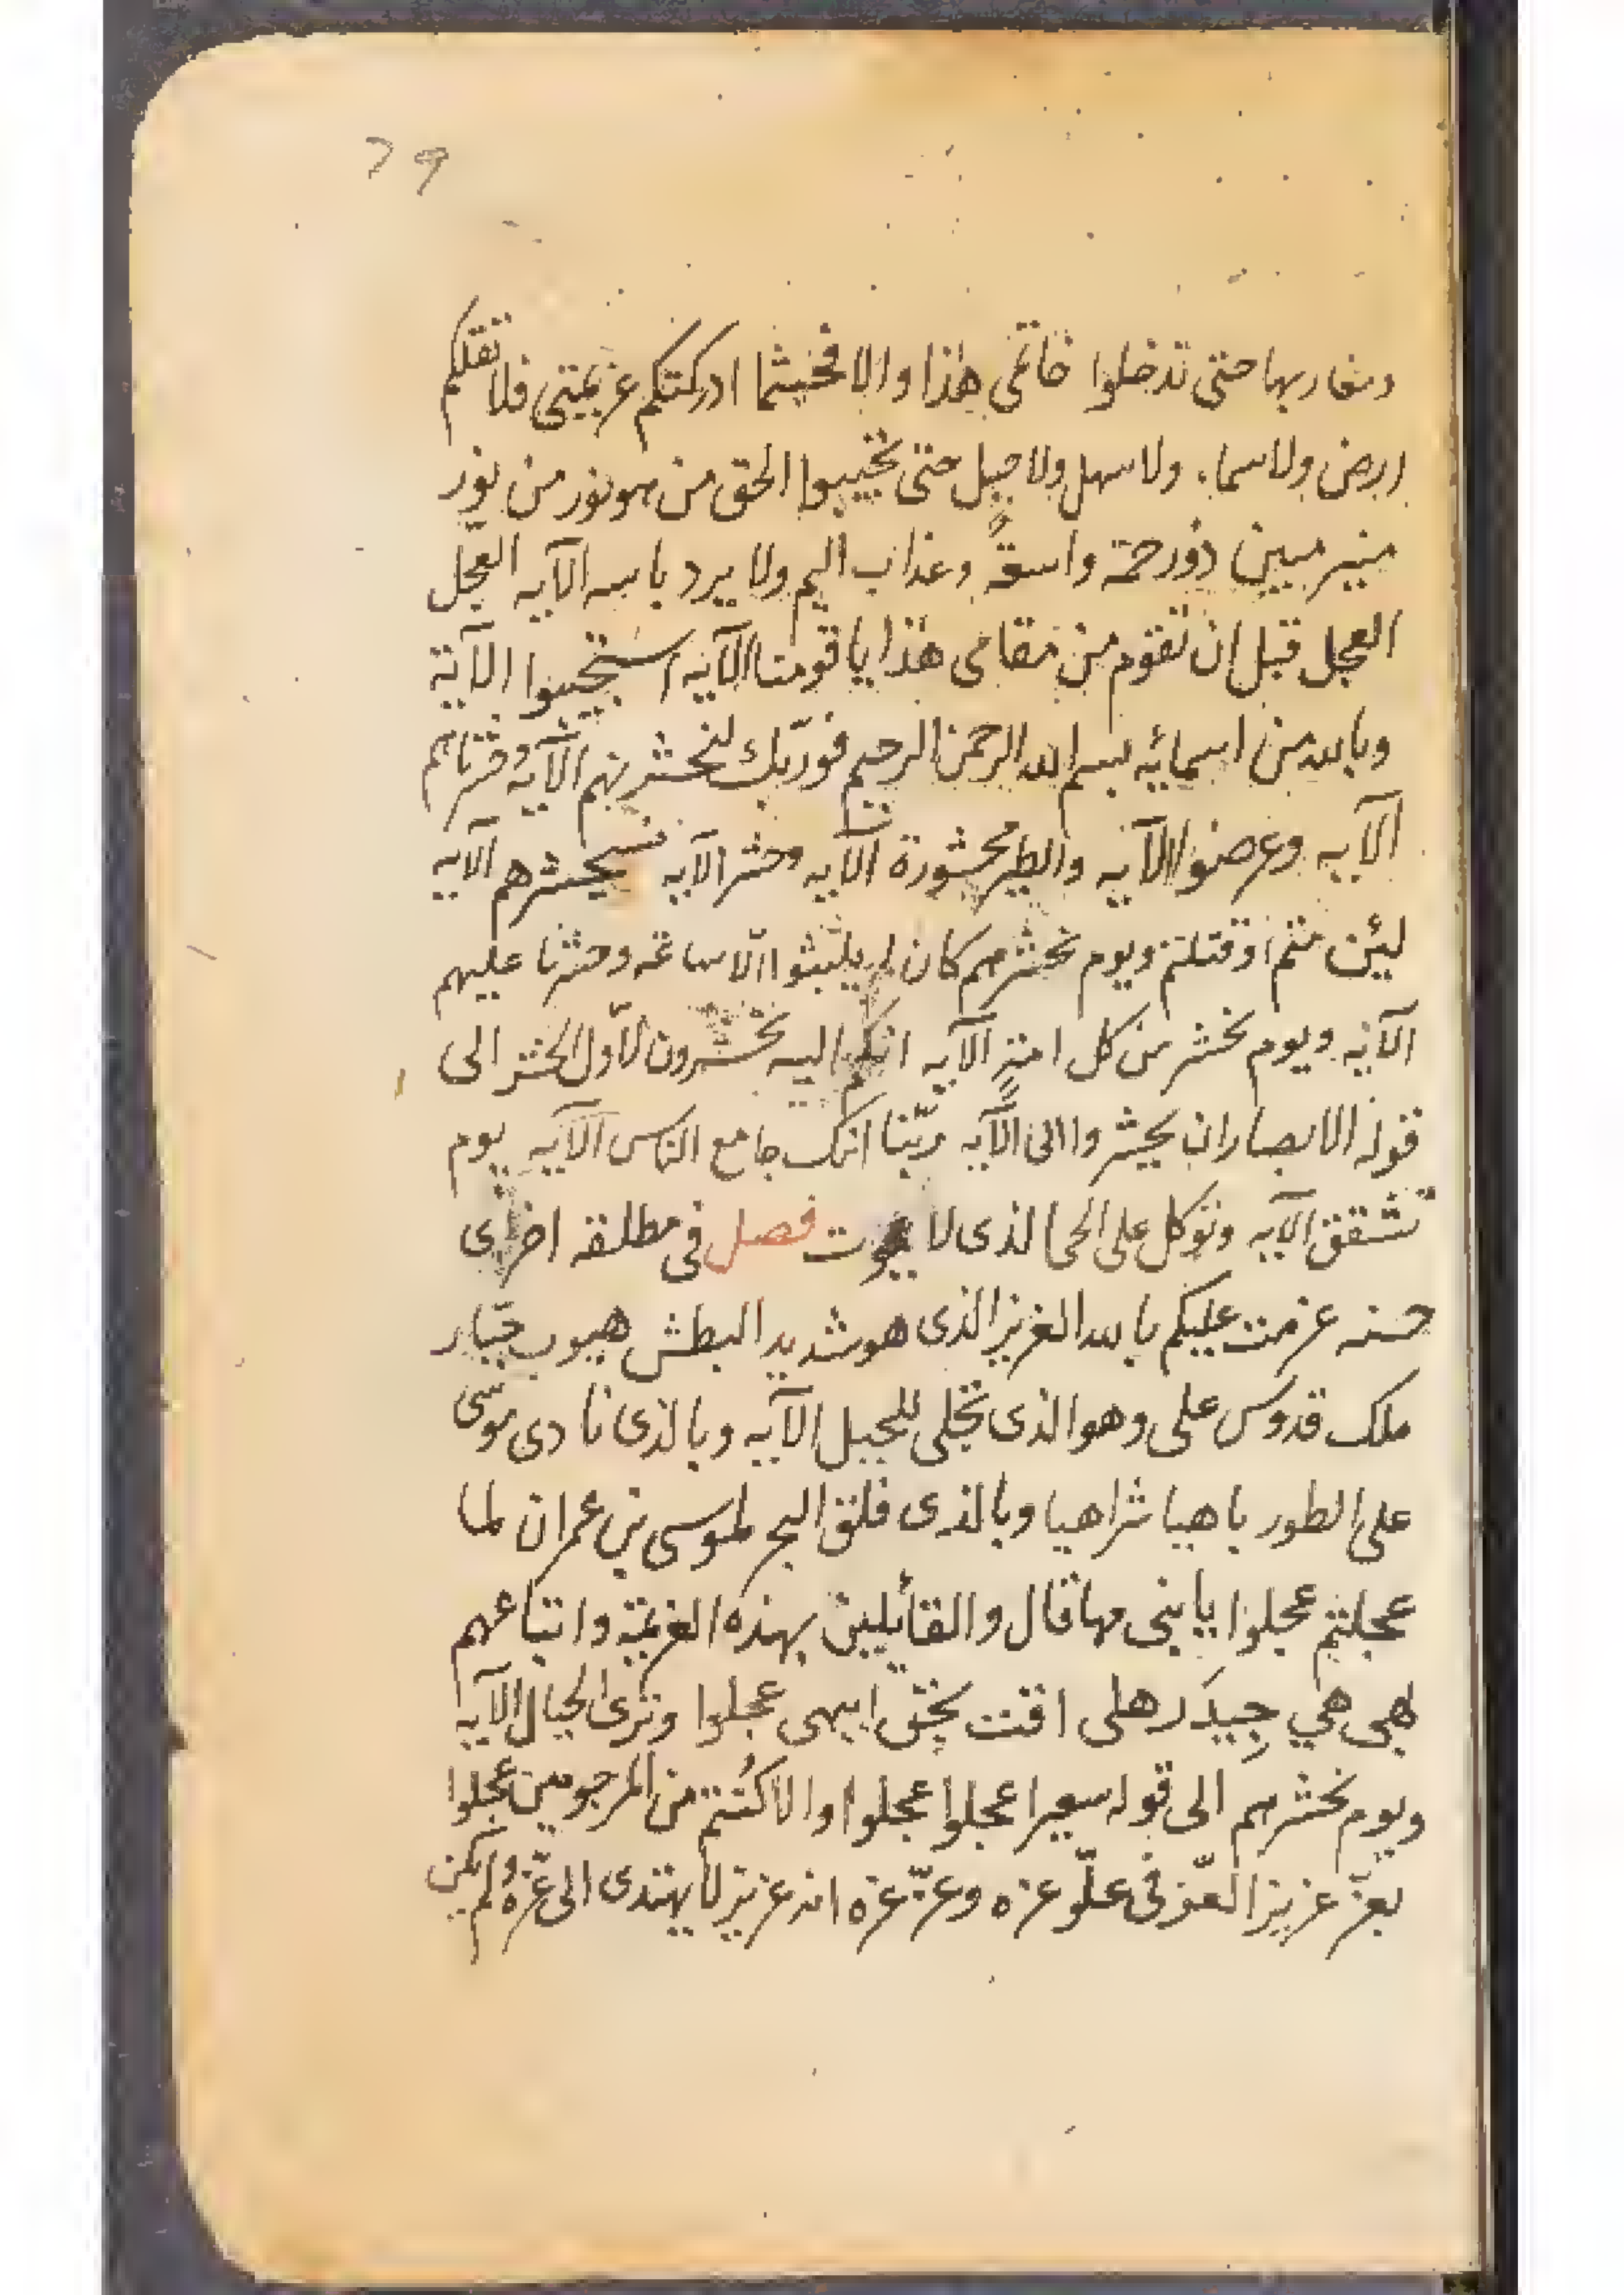 79
ومغاربها حتى تدخلوا خاتمى هذا والا فحيثما ادركتكم عزيمتى فلا تقلكم
ارض ولا سماء ولا سهل ولا جبل حتى تجيبوا الحق من هو نور من نور
منير مبين ذو رحمة واسعة وعذاب اليم ولا يرد باسه الآيه العجل
العجل قبل ان تقوم من مقامى هذا يا قومنا الآيه استجيبوا الآية
وبالله من اسمائه بسم الله الرحمن الرحيم فوربّك لنحشرنهم الآيه وحشرناهم
الآيه وعرضوا الآيه والطير محشورة الآيه وحشر الآيه فسيحشرهم الآيه
ليئن متم او قتلتم ويوم نحشرهم كان لم يلبثوا الّا ساعة وحشرنا عليهم
الآيه ويوم نحشر من كل امةٍ الآيه انكم اليه تحشرون لاوّل الحشر الى
قوله الابصار ان يحشروا الى الآيه ربّنا انك جامع الناس الآيه يوم
تشقق الآيه وتوكل على الحى الذى لا يموت فصل فى مطلقه اخرى
حسنه عزمت عليكم بالله العزيز الذى هو شديد البطش هيوب جبّار
ملك قدوس على وهو الذى تجلى للجبل الآيه وبالذى نادى موسى
على الطور باهيا شراهيا وبالذى فلق البحر لموسى بن عمران لما
عجلتم عجلوا يا بنى مهاقال والقائلين بهذه العزيمة واتباعهم
هى هي جِيدَر هلى افتت بحق ابيهى عجلوا وترى الجبال الآيه
ويوم نحشرهم الى قوله سعيرا عجلوا عجلوا والا كنتم من المرجومين عجلوا
بعزّ عزيز العزّ فى علّو عزه وعزّ عزه انه عزيز لا يهتدى الى عزّه ولم يكن